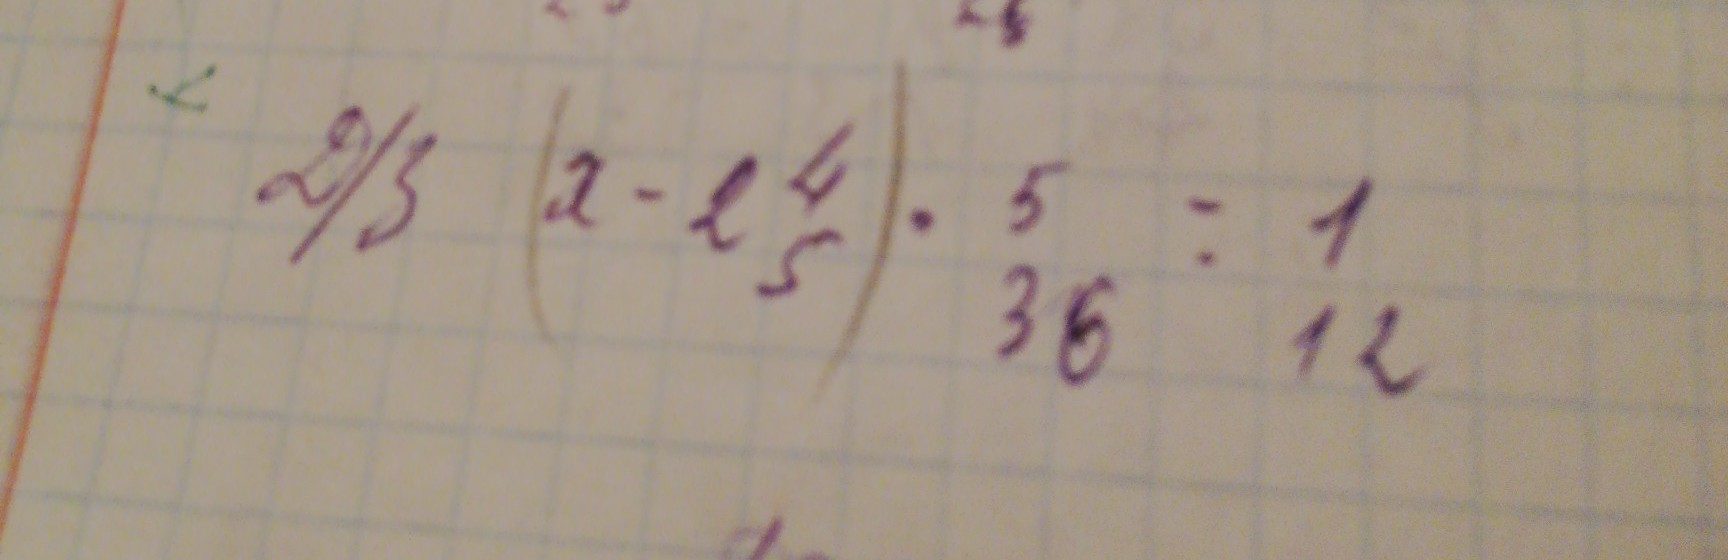 2/3 (x - 2 4/5) · 5/36 = 1/12